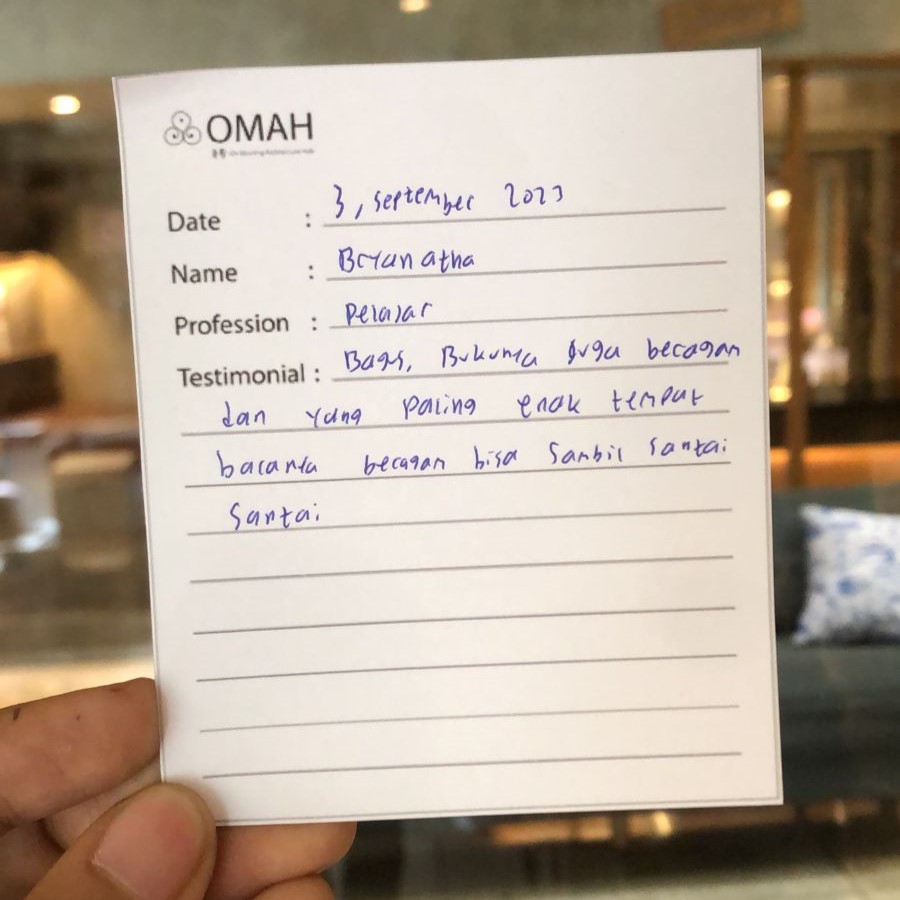 OMAH
Date : 3, september 2023
Name : Bryan atha
Profession : Pelajar
Testimonial : Bags, Bukunya juga beragam
dan yang paling enak tempat
bacanya beragam bisa Sambil santai
Santai